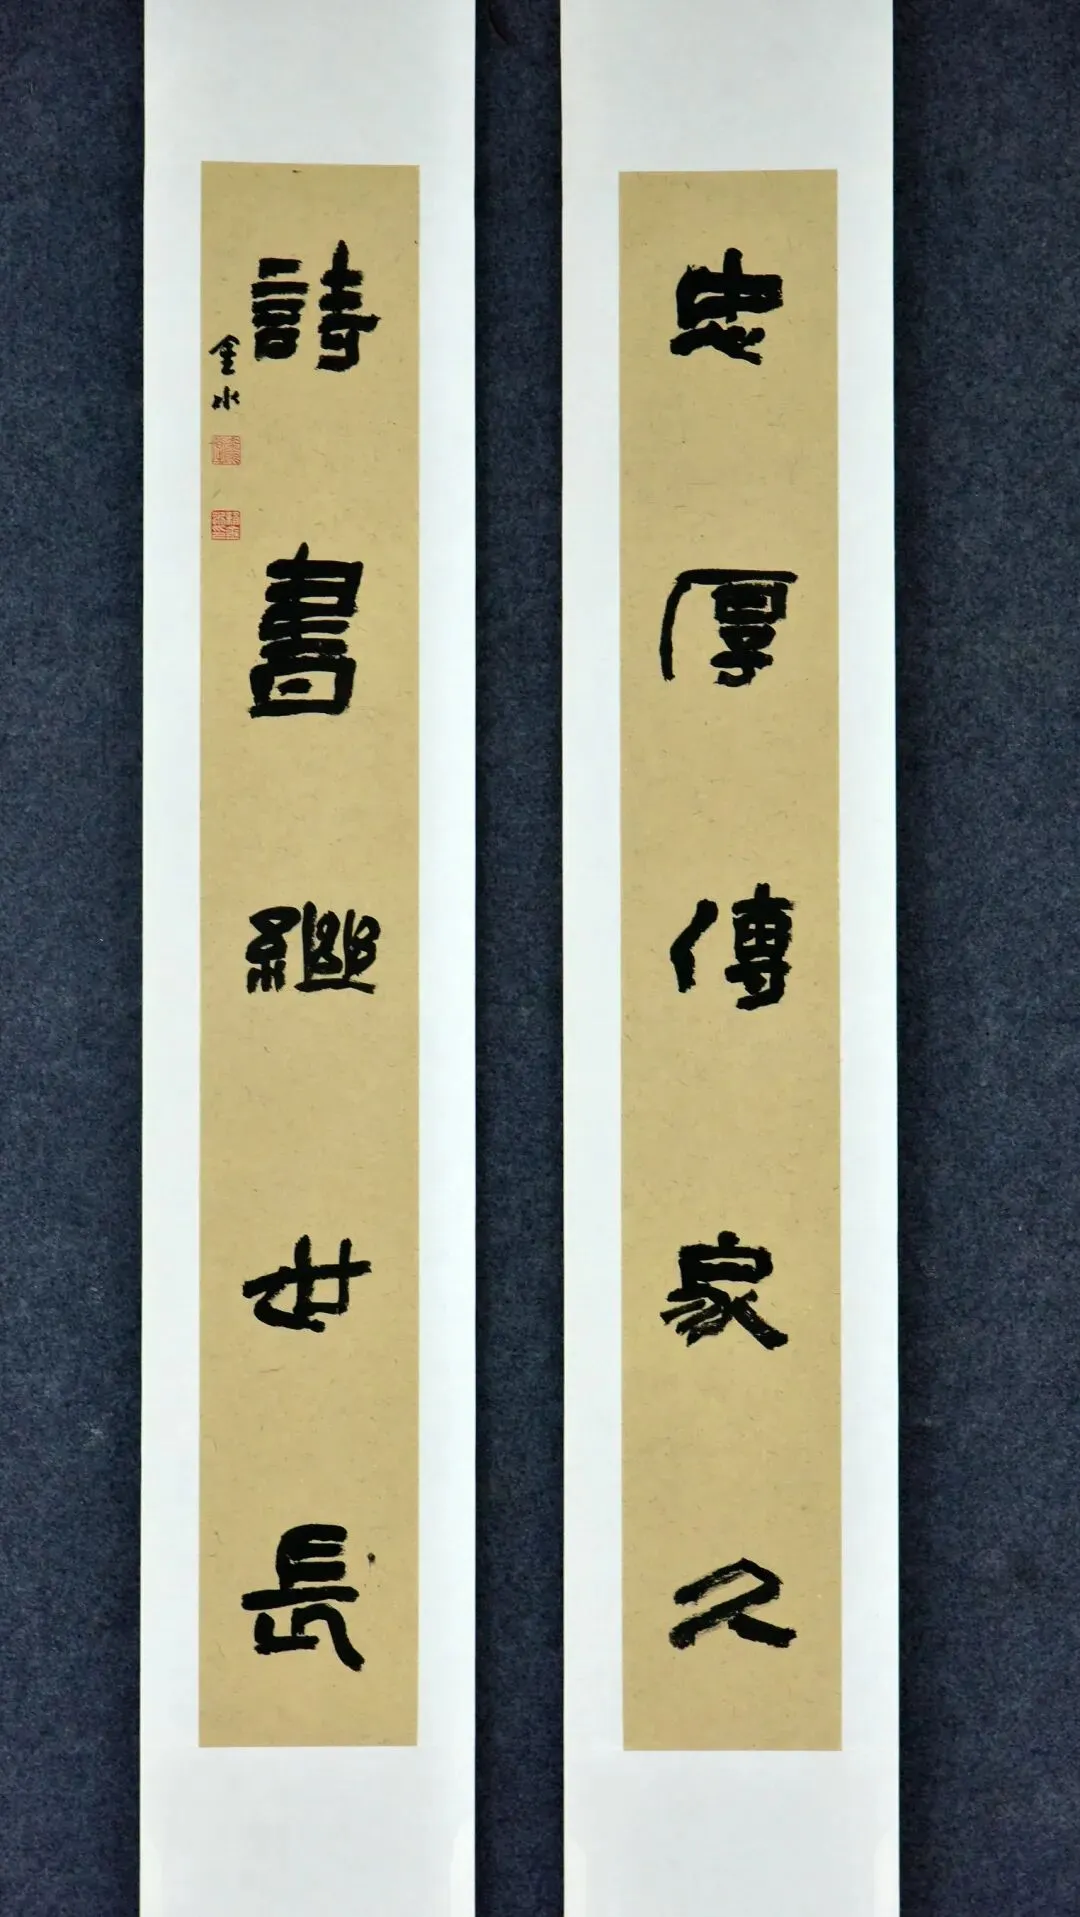 忠厚傳家久
詩書繼世長
金水